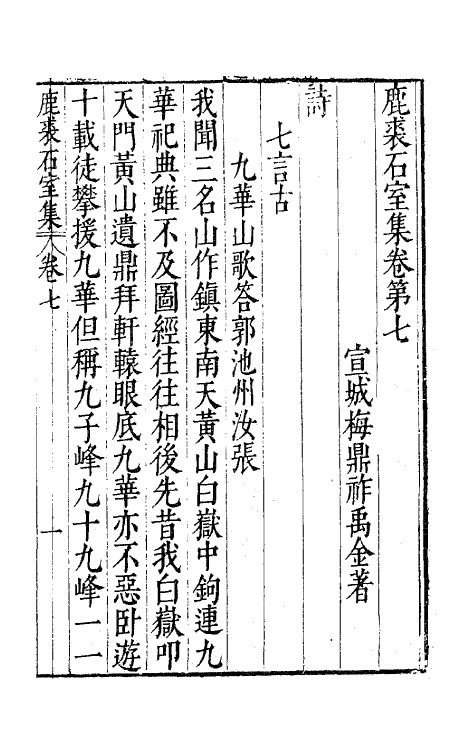 鹿裘石室集卷第七
宣城梅鼎祚禹金著
詩
七言古
九華山歌答郭池州汝張
我聞三名山作鎮東南天黃山白嶽中鉤連九
華祀典雖不及圖經往往相後先昔我白嶽叩
天門黃山遺鼎拜軒轅眼底九華亦不惡卧遊
十載徒攀援九華但稱九子峰九十九峰一一
鹿裘石室集 卷七 一